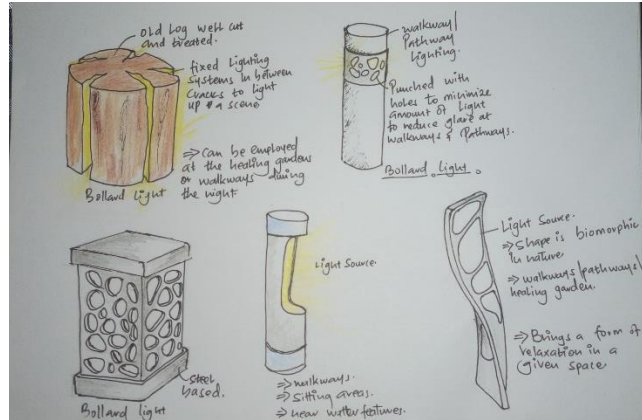 old log well cut
and treated.
fixed lighting
systems in between
cracks to light
up a scene
⇒ can be employed
at the healing gardens
or walkways during
the night.
Bollard Light
walkway/
Pathway
Lighting.
Punched with
holes to minimize
amount of light
to reduce glare at
walkways & Pathways.
Bollard Light.
Steel
based.
Bollard light
Light Source.
⇒ walkways.
⇒ Sitting areas.
⇒ near water features.
Light Source.
⇒ Shape is biomorphic
in nature
⇒ walkways/pathways/
healing garden.
⇒ Brings a form of
relaxation in a
given space